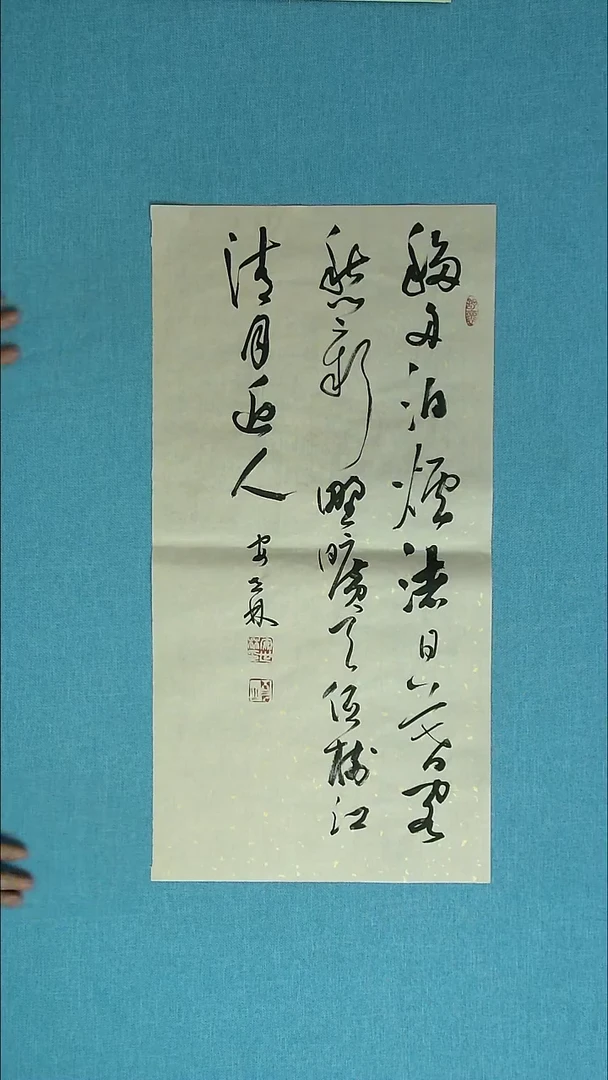 移舟泊煙渚日暮客
愁新野曠天低树江
清月近人